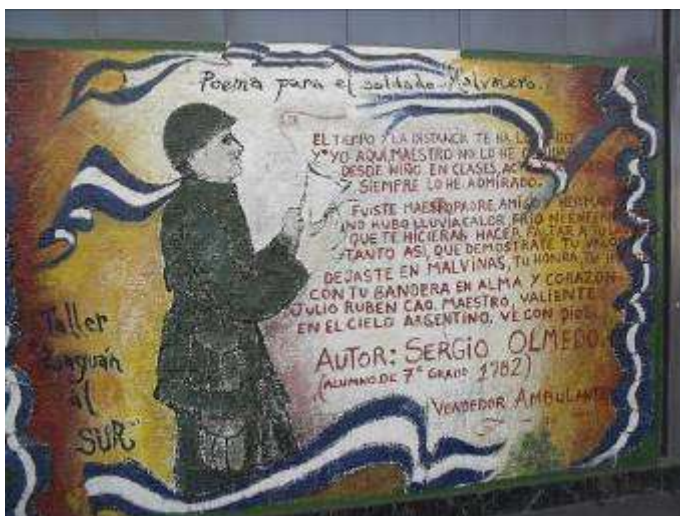 Poema para el soldado Malvinero.
EL TIEMPO Y LA DISTANCIA TE HA
Y YO AQUI, MAESTRO NO LO HE
DESDE NIÑO EN CLASES,
SIEMPRE LO HE ADMIRADO.
FUISTE MAESTRO, PADRE, AMIGO Y
NO HUBO LLUVIA, CALOR, FRIO NI
QUE TE HICIERAN HACER FALTAR A TU
TANTO ASI, QUE DEMOSTRATE TU
DEJASTE EN MALVINAS, TU HONRA, TU
CON TU BANDERA EN ALMA Y CORAZON
JULIO RUBEN CAO, MAESTRO, VALIENTE
EN EL CIELO ARGENTINO, VE CON DIOS.
AUTOR: SERGIO OLMEDO.
(ALUMNO DE 7° GRADO 1982)
VENDEDOR AMBULANTE
Taller
Zaguán
al
SUR